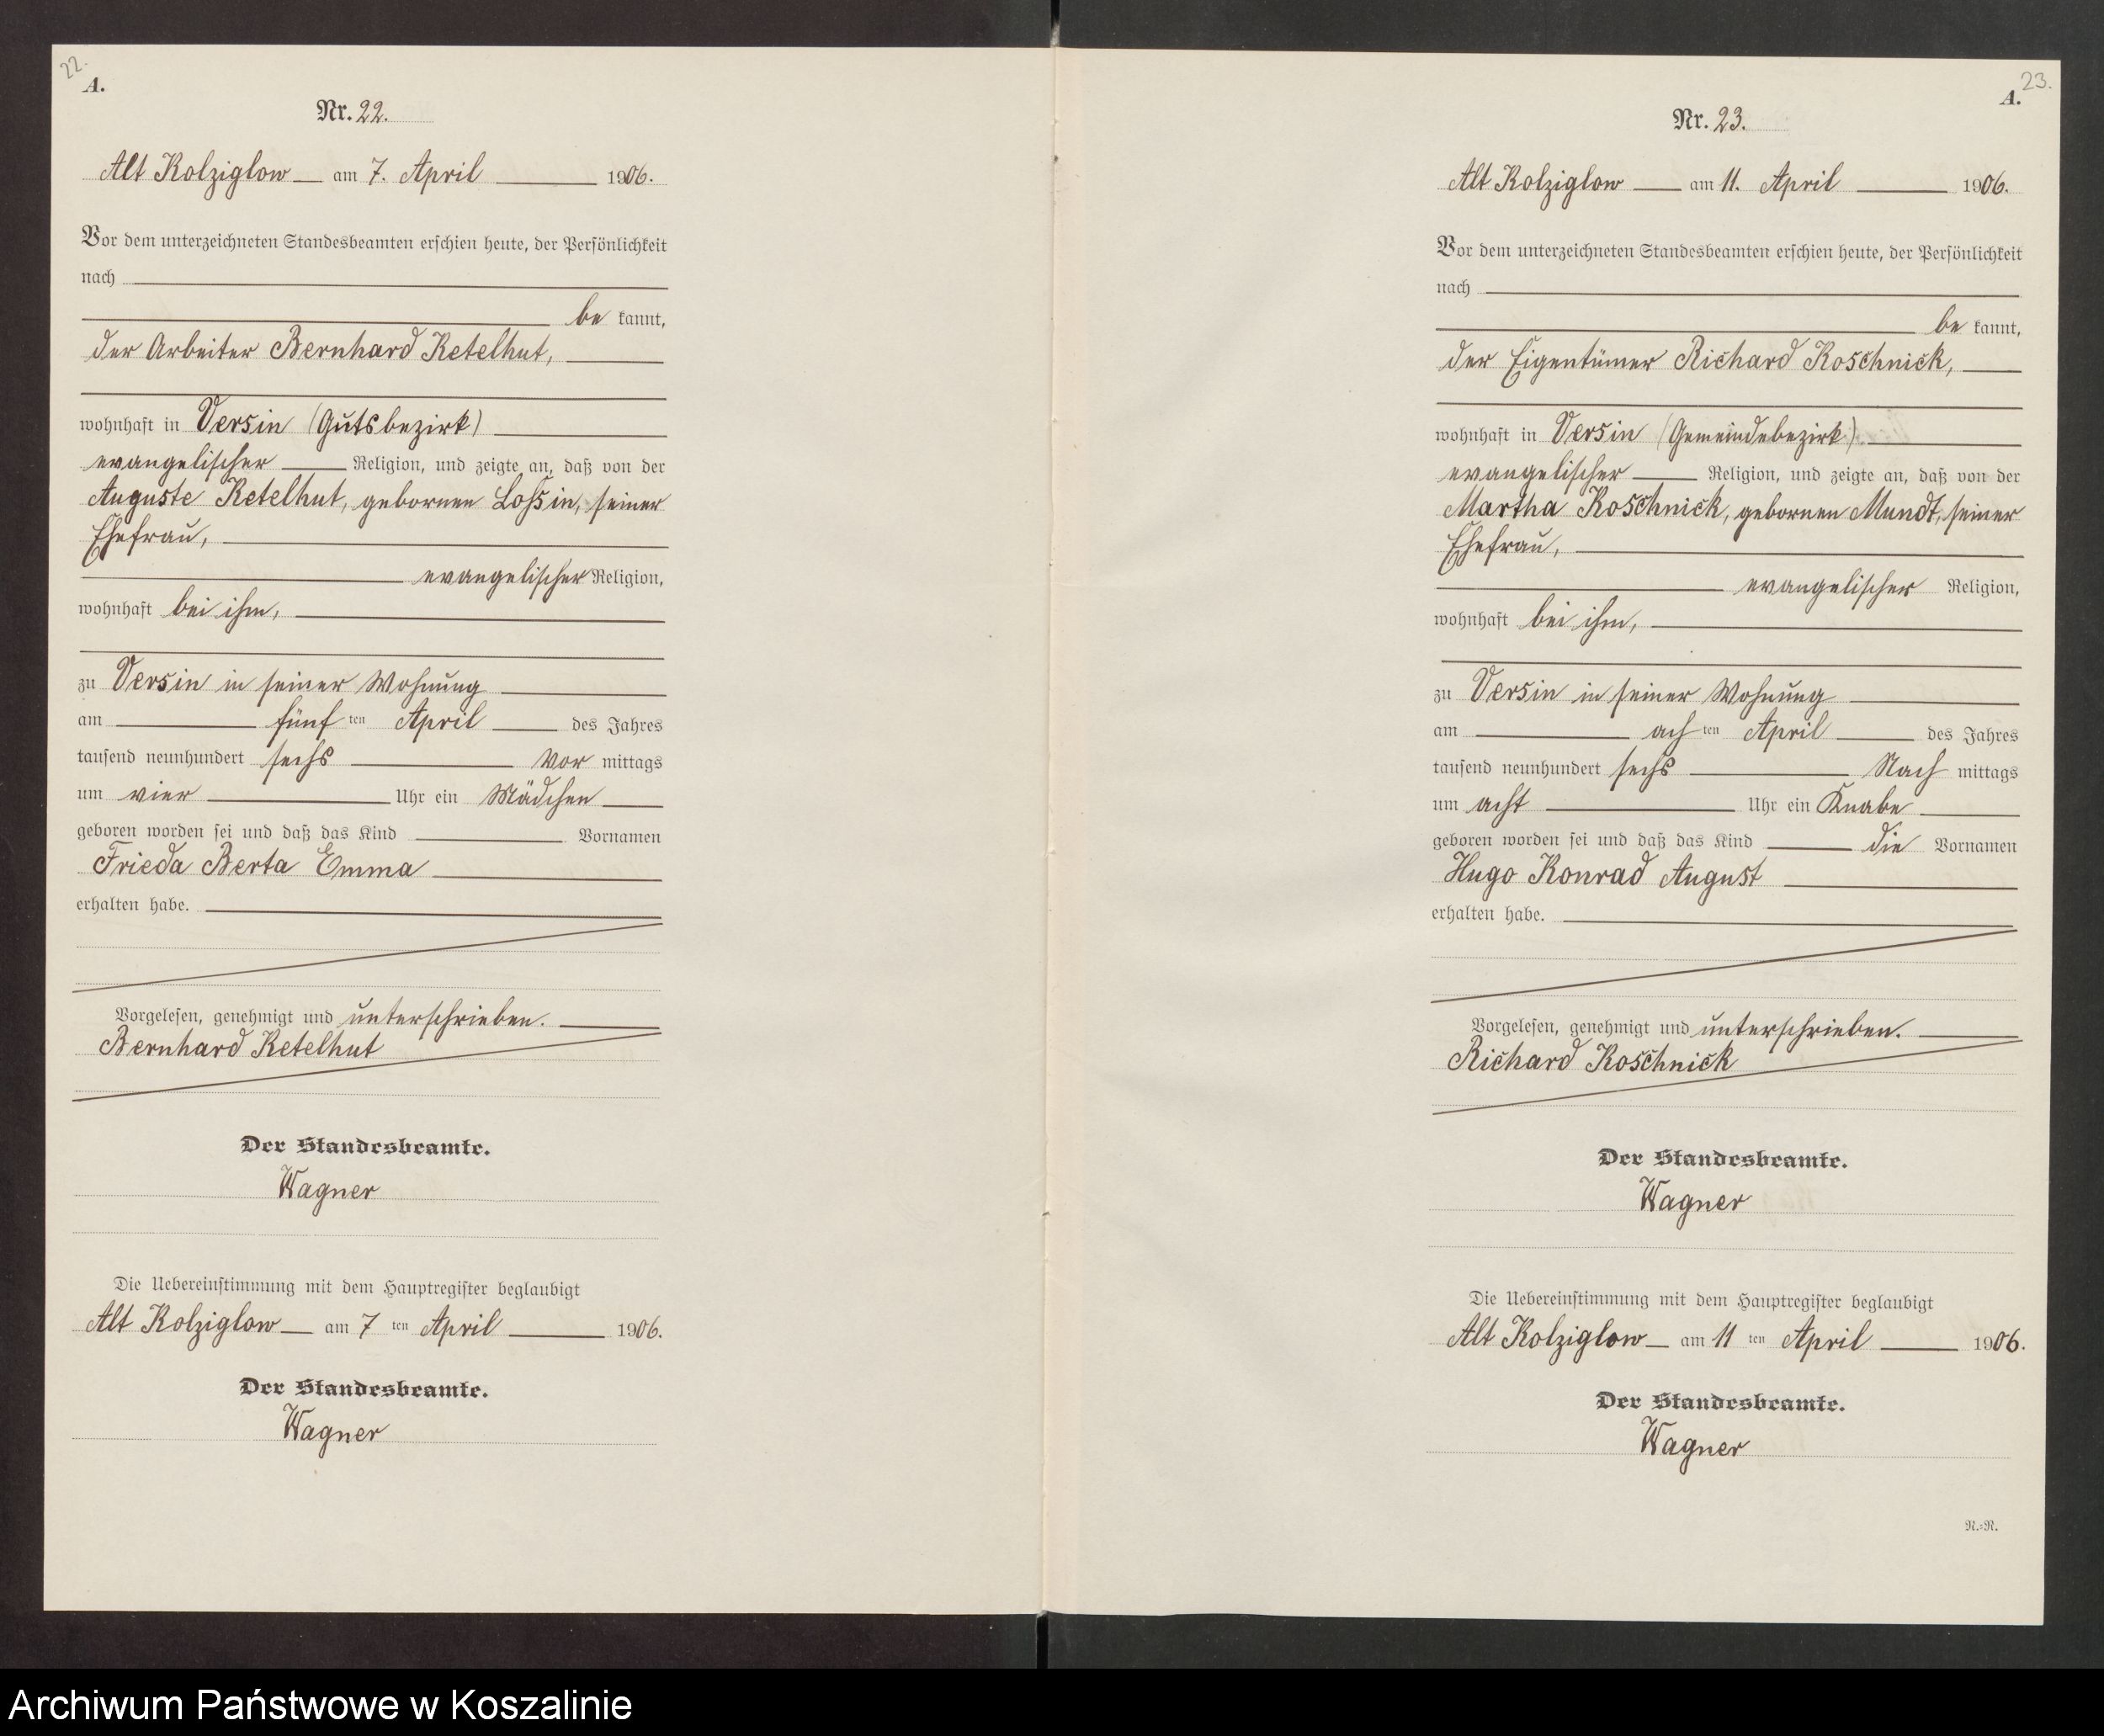 22.
A.
Nr. 22.
Alt Kolziglow am 7. April 1906.
Vor dem unterzeichneten Standesbeamten erschien heute, der Persönlichkeit
nach
be kannt,
der Arbeiter Bernhard Ketelhut,
wohnhaft in Versin (Gutsbezirk)
evangelischer Religion, und zeigte an, daß von der
Auguste Ketelhut, gebornen Lossin, seiner
Ehefrau,
evangelischer Religion,
wohnhaft bei ihm,
zu Versin in seiner Wohnung
am fünf ten April des Jahres
tausend neunhundert sechs Vor mittags
um vier Uhr ein Mädchen
geboren worden sei und daß das Kind Vornamen
Frieda Berta Emma
erhalten habe.
Vorgelesen, genehmigt und unterschrieben.
Bernhard Ketelhut
Der Standesbeamte.
Wagner
Die Uebereinstimmung mit dem Hauptregister beglaubigt
Alt Kolziglow am 7 ten April 1906.
Der Standesbeamte.
Wagner
23.
A.
Nr. 23.
Alt Kolziglow am 11. April 1906.
Vor dem unterzeichneten Standesbeamten erschien heute, der Persönlichkeit
nach
be kannt,
der Eigentümer Richard Koschnick,
wohnhaft in Versin (Gemeindebezirk)
evangelischer Religion, und zeigte an, daß von der
Martha Koschnick, gebornen Mundt, seiner
Ehefrau,
evangelischer Religion,
wohnhaft bei ihm,
zu Versin in seiner Wohnung
am ach ten April des Jahres
tausend neunhundert sechs Nach mittags
um acht Uhr ein Knabe
geboren worden sei und daß das Kind die Vornamen
Hugo Konrad August
erhalten habe.
Vorgelesen, genehmigt und unterschrieben.
Richard Koschnick
Der Standesbeamte.
Wagner
Die Uebereinstimmung mit dem Hauptregister beglaubigt
Alt Kolziglow am 11 ten April 1906.
Der Standesbeamte.
Wagner
N.=R.
Archiwum Państwowe w Koszalinie